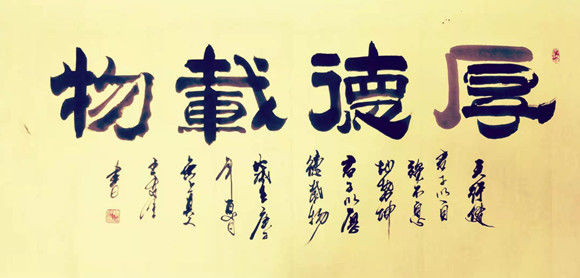 厚德載物
天行健
君子以自
强不息
地勢坤
君子以厚
德載物
書